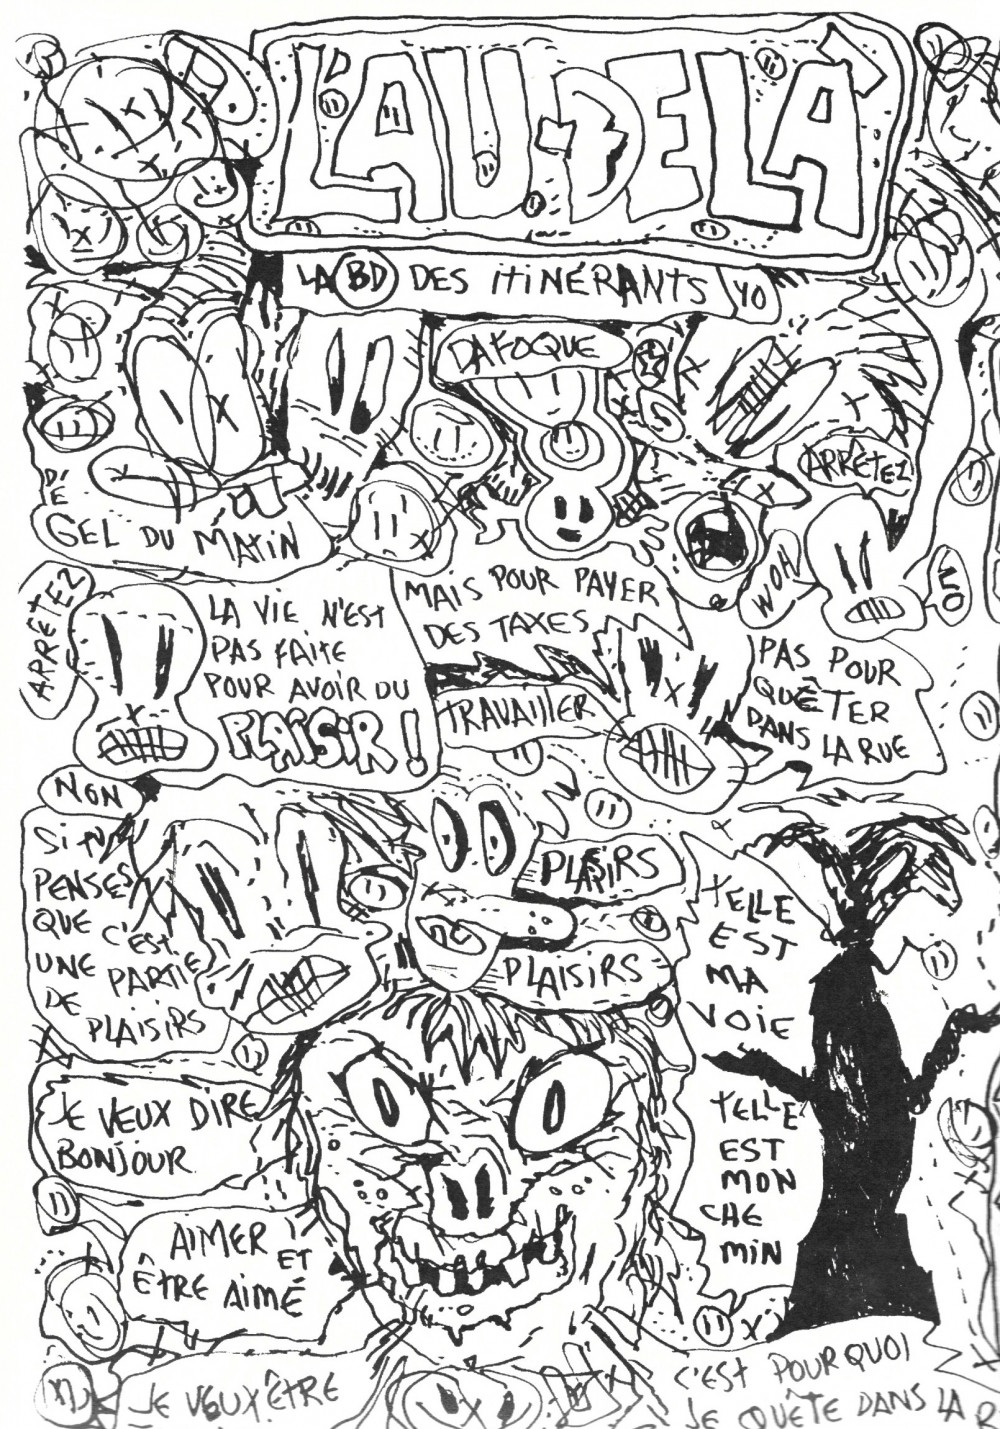 L'AU-DELÀ
LA BD DES iTiNÉRANTS YO
DAFOQUE
ARRÊTEZ
DÉ
GEL DU MATIN
WOH
ARRÊTEZ
LA ViE N'EST
PAS FAITE
POUR AVOIR DU
PLAiSiR !
MAIS POUR PAYER
DES TAXES
TRAVAILLER
PAS POUR
QUÊTER
DANS LA RUE
NON
Si TU
PENSES
QUE C'EST
UNE PARTIE
DE PLAISIRS
PLAISIRS
PLAISIRS
TELLE
EST
MA
VOIE
TELLE
EST
MON
CHE
MIN
JE VEUX DIRE
BONJOUR
AIMER ET
ÊTRE AIMÉ
JE VEUX ÊTRE
C'EST POURQUOI
JE QUÊTE DANS LA R